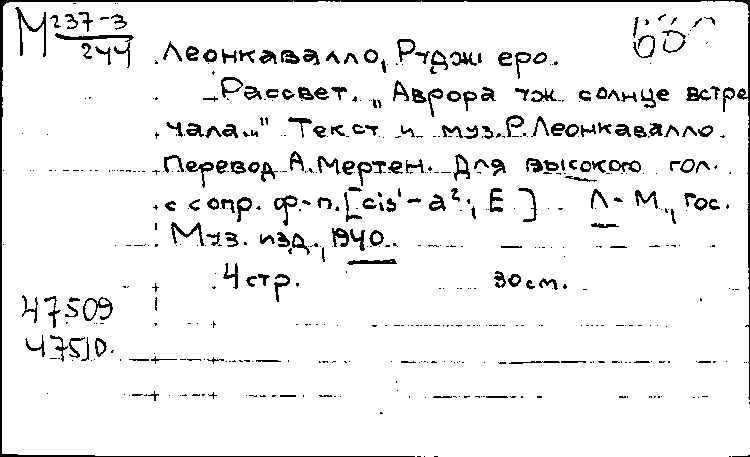 М 237-3
244
Леонкавалло, Руджиеро.
Рассвет. „Аврора уж солнце встре
чала..." Текст и муз. Р. Леонкавалло.
Перевод А. Мертен. Для высокого гол.
с сопр. ф.-п. [cis¹ - a²; E]. Л.-М., Гос.
Муз. изд., 1940.
4 стр. 30 см.
47509
47510.